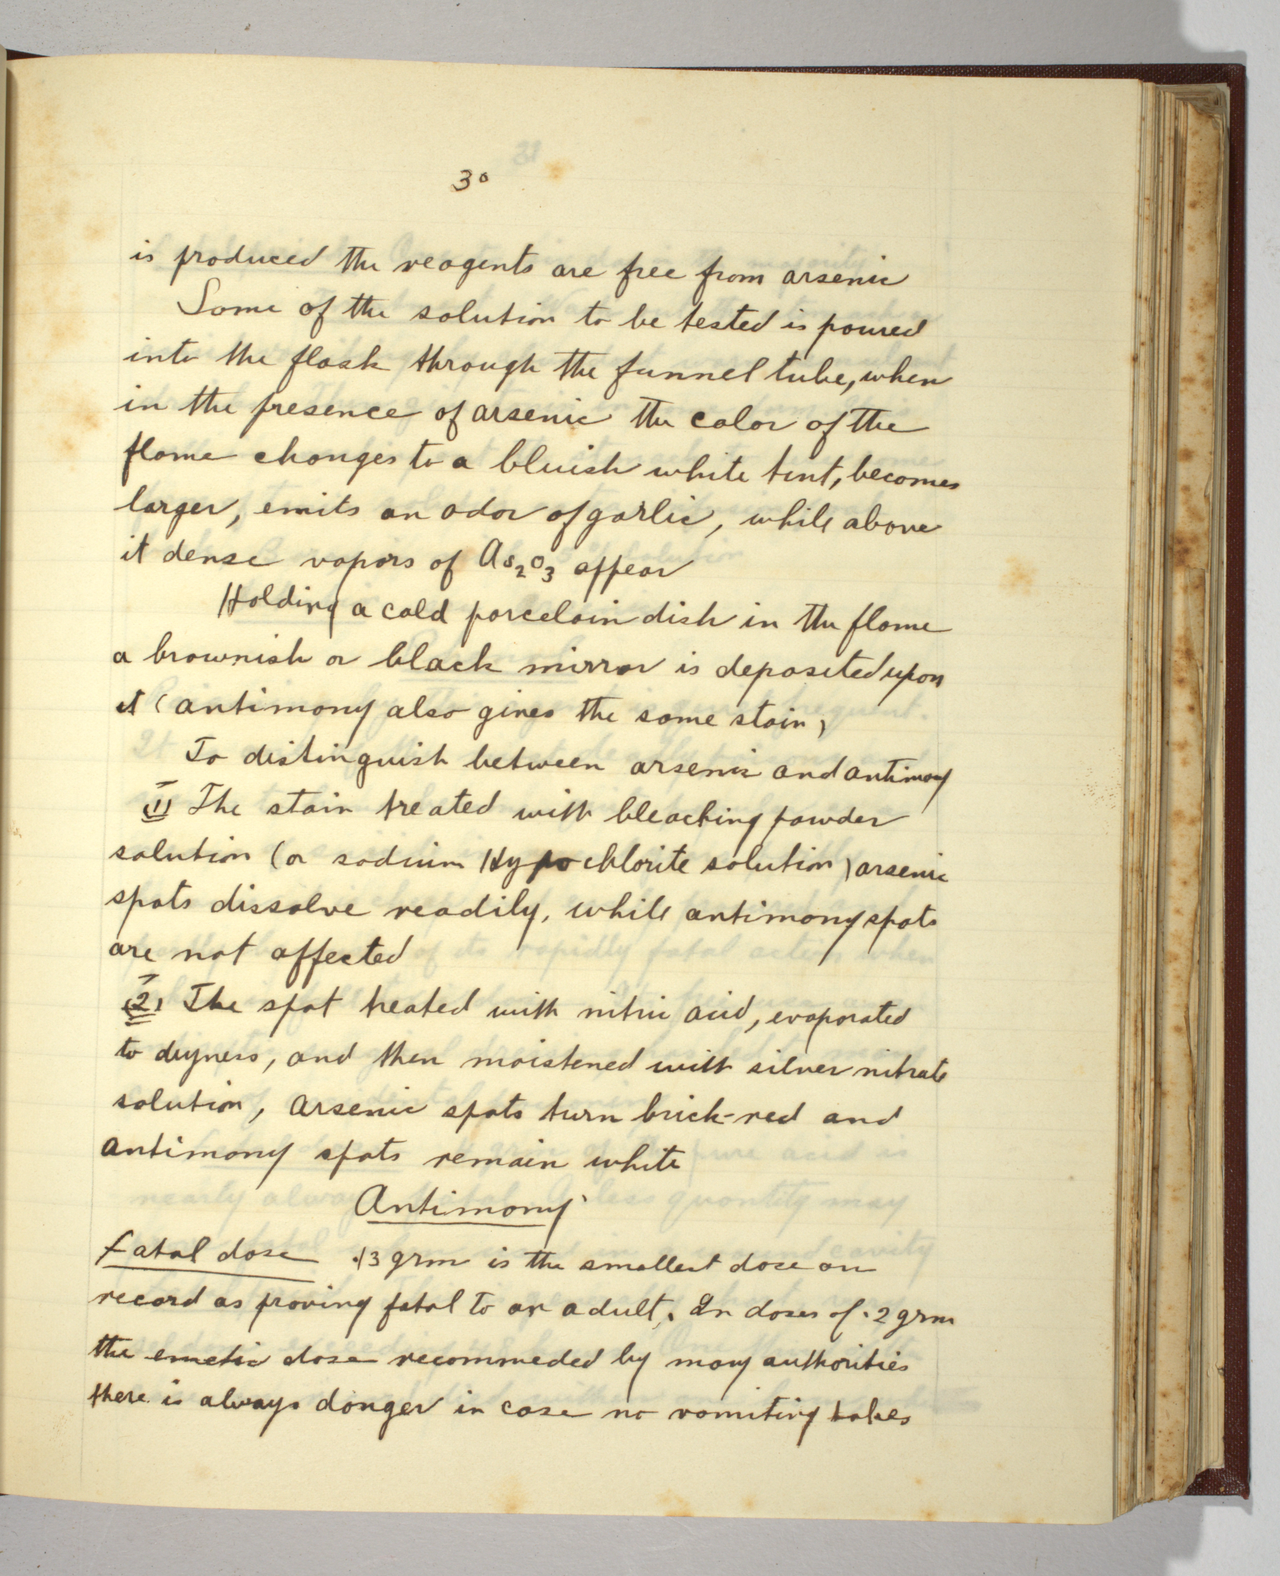 30
is produced the reagents are free from arsenic
Some of the solution to be tested is poured
into the flask through the funnel tube, when
in the presence of arsenic the color of the
flame changes to a bluish white tint, becomes
larger, emits an odor of garlic, while above
it dense vapors of As2O3 appear
Holding a cold porcelain dish in the flame
a brownish or black mirror is deposited upon
it (antimony also gives the same stain)
To distinguish between arsenic and antimony
(1) The stain treated with bleaching powder
solution (or sodium Hypochlorite solution) arsenic
spots dissolve readily, while antimony spots
are not affected
(2) The spot treated with nitric acid, evaporated
to dryness, and then moistened with silver nitrate
solution, arsenic spots turn brick-red and
antimony spots remain white
Antimony
Fatal dose .13 grm is the smallest dose on
record as proving fatal to an adult. In doses of .2 grm
the emetic dose recommeded by many authorities
there is always danger in case no vomiting takes